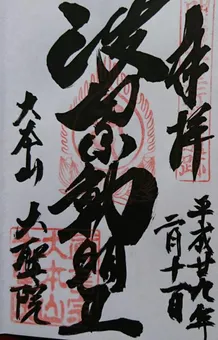 奉拝
平成廿九年
二月十一日
波切不動明王
大本山 大聖院